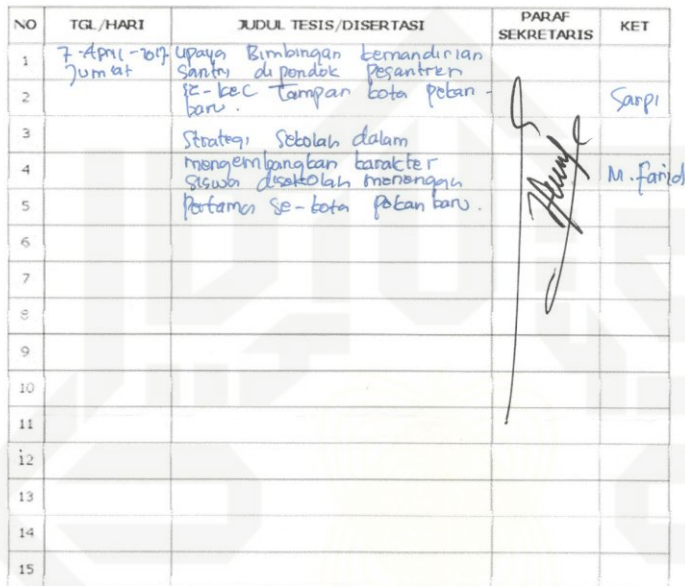 NO TGL/HARI JUDUL TESIS/DISERTASI PARAF SEKRETARIS KET
1 7-April-2017 Upaya Bimbingan kemandirian
Jumat Santri di pondok pesantren
2 se-kec Tampan kota pekan- Sarpi
baru.
3 Strategi Sekolah dalam
4 mengembangkan karakter M. Farid
siswa disekolah menengah
5 Pertama se-kota pekanbaru.
6
7
8
9
10
11
12
13
14
15